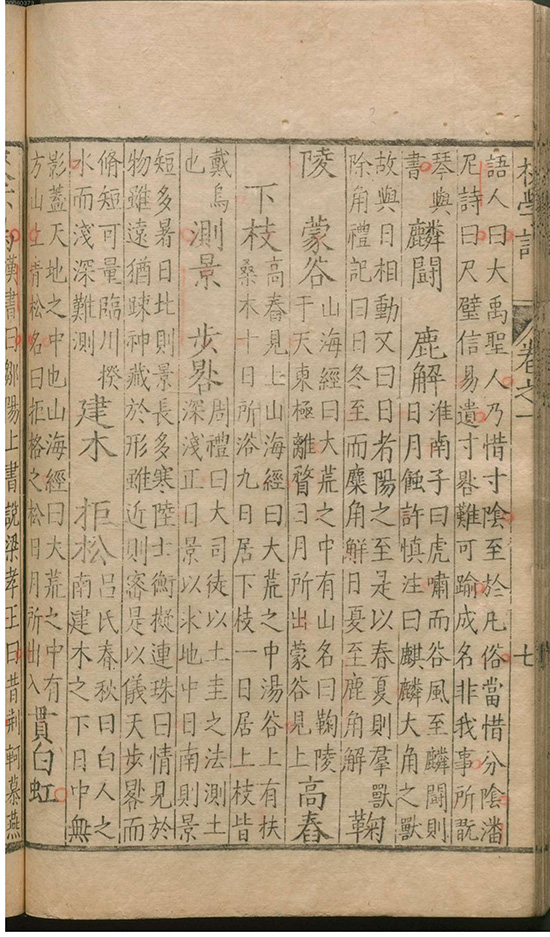 初學記 卷之一 七
語人曰大禹聖人乃惜寸陰至於凡俗當惜分陰潘
尼詩曰尺璧信易遺寸晷難可踰成名非我事所翫
琴與
書
麟鬬 鹿解
淮南子曰虎嘯而谷風至麟鬬則
日月蝕許慎注曰麒麟大角之獸
故與日相動文曰日者陽之至是以春夏則羣獸
除角禮記曰日冬至而麋角觧日夏至鹿角解
鞠
陵 蒙谷
山海經曰大荒之中有山名曰鞠陵
于天東極離瞀日月所出蒙谷見上
高舂
下枝
高舂見上山海經曰大荒之中湯谷上有扶
桑木十日所浴九日居下枝一日居上枝皆
戴烏
也
測景 步晷
周禮曰大司徒以土圭之法測土
深淺正日景以求地中日南則景
短多暑日北則景長多寒陸士衡擬連珠曰情見於
物雖遠猶踈神藏於形雖近則密是以儀天步晷而
脩短可量臨川揆
水而淺深難測
建木 拒松
呂氏春秋曰白人之
南建木之下日中無
影蓋天地之中也山海經曰大荒之中有
方山上青松名曰拒格之松日月所出入
貫白虹
漢書曰鄒陽上書說梁孝王曰昔荆軻慕燕